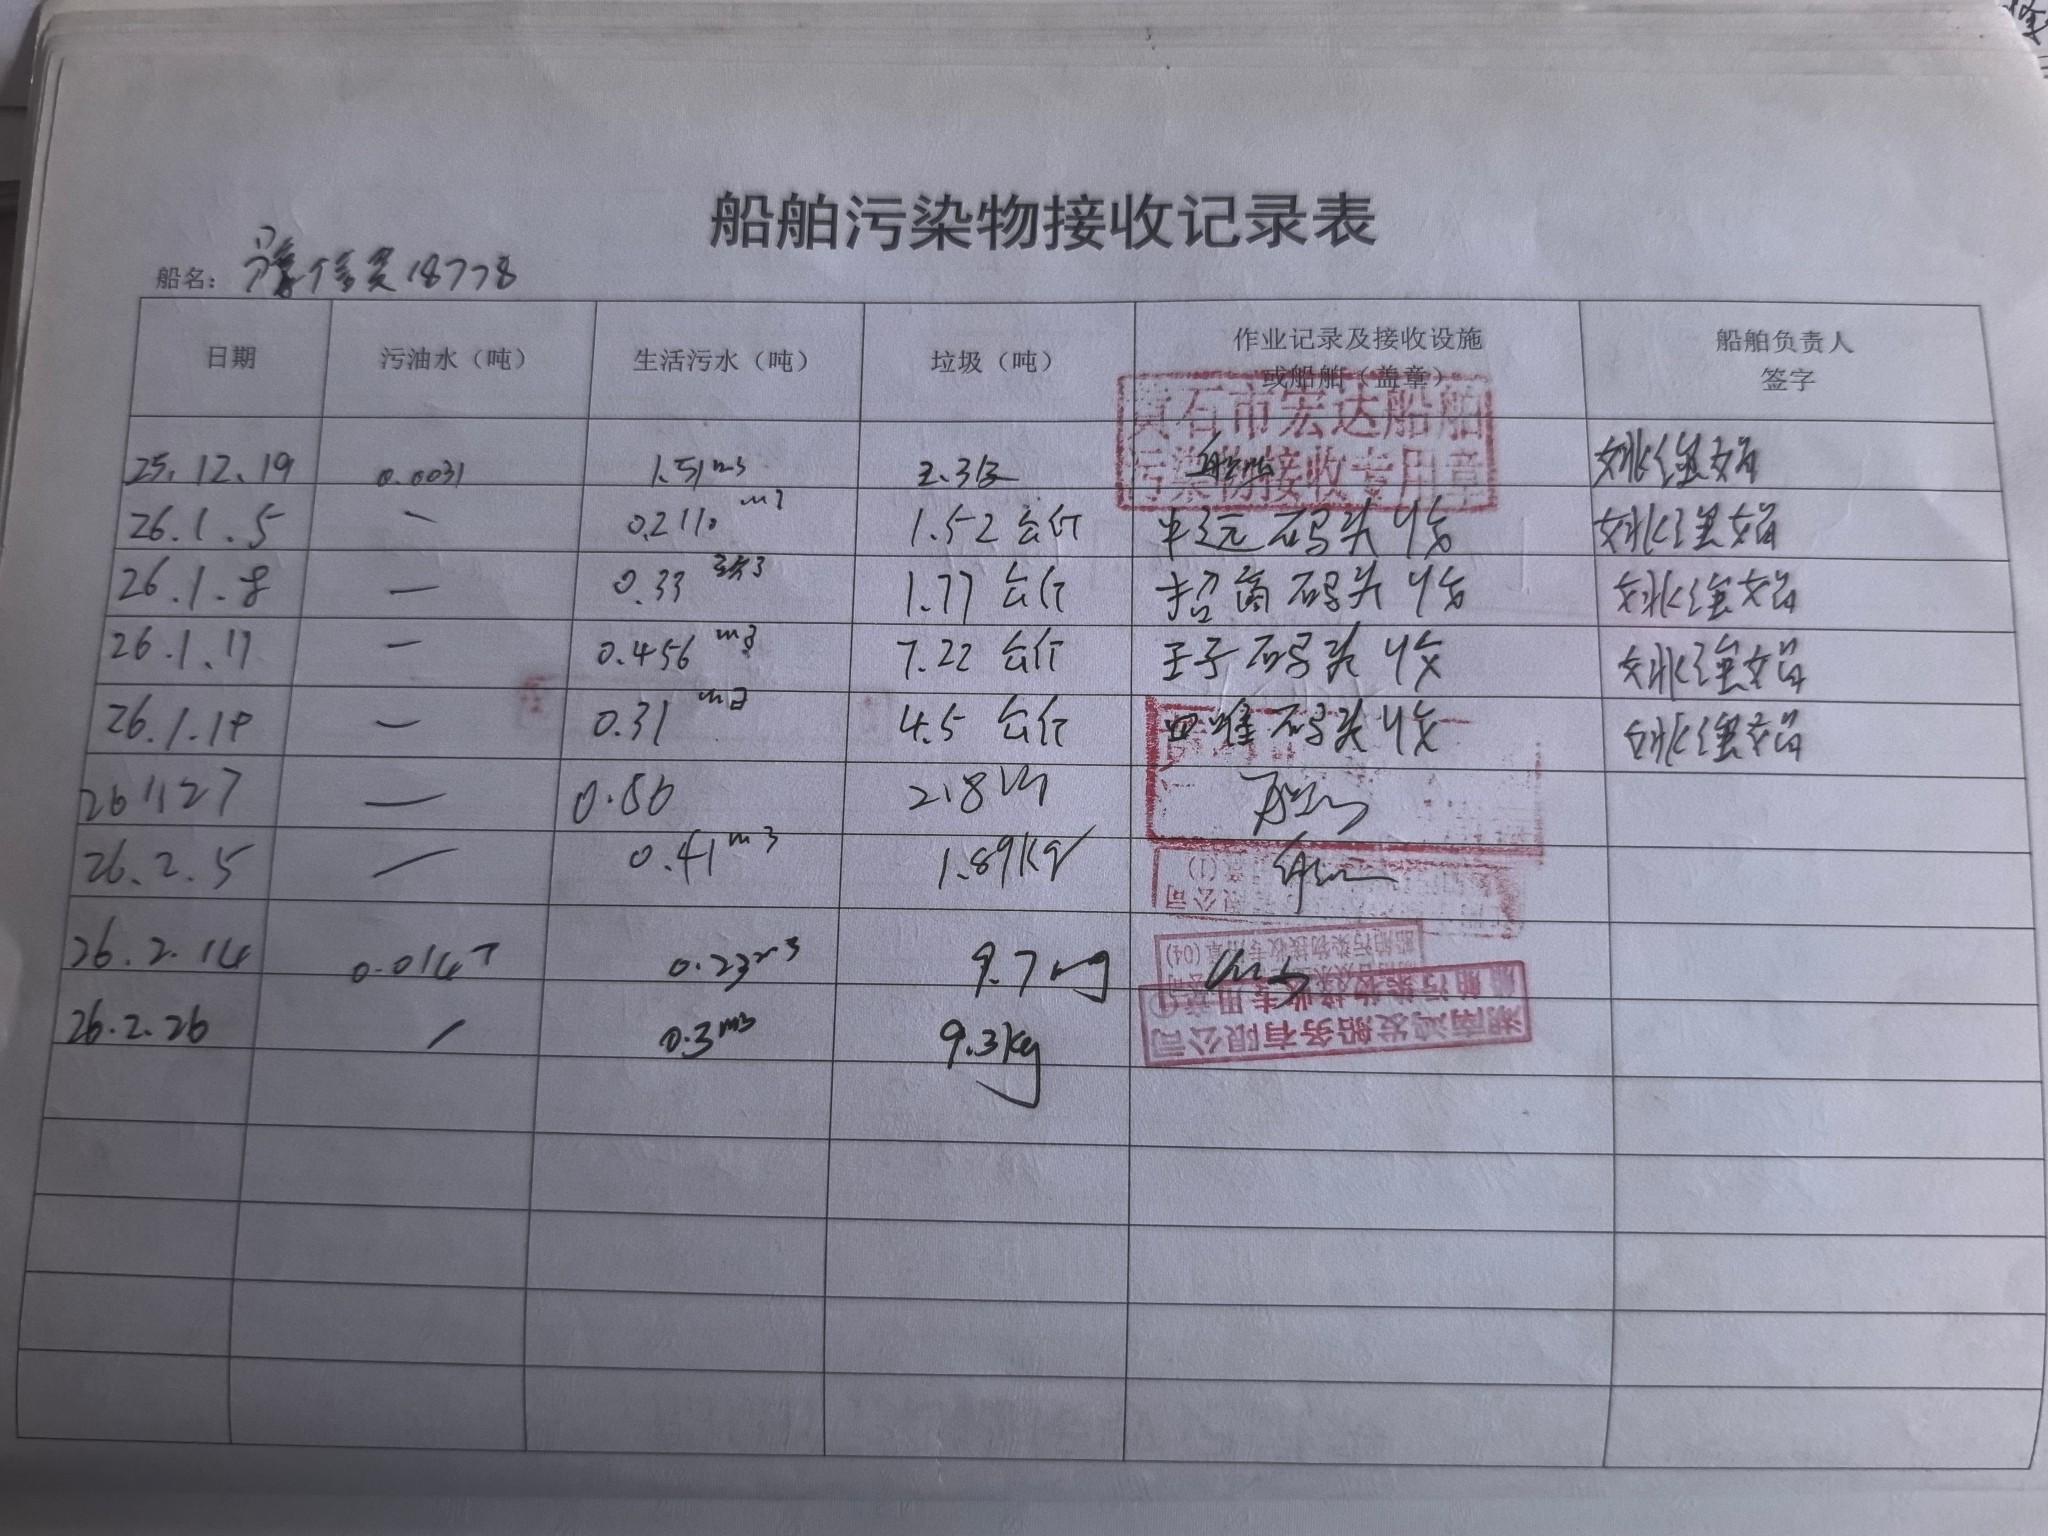 船舶污染物接收记录表
船名: 豫信货18778
日期 污油水（吨） 生活污水（吨） 垃圾（吨） 作业记录及接收设施或船舶（盖章） 船舶负责人签字
黄石市宏达船舶
污染物接收专用章
25.12.19 0.0031 1.51m3
26.1.5 — 0.2110 m3 1.52 公斤 中远码头收
26.1.8 — 0.33 1.77 公斤 招商码头收
26.1.11 — 0.456 m3 7.22 公斤 王子码头收
26.1.18 — 0.31 m3 4.5 公斤 码头收
26.1.27 — 0.86 2.8
26.2.5 — 0.41m3 1.89kg
公司 (1)
26.2.14 0.014T 0.23m3 9.7kg
船舶污染物接收专用章(04)
26.2.26 / 0.3m3 9.3kg
湖南鸿发船务有限公司
船舶污染物接收专用章